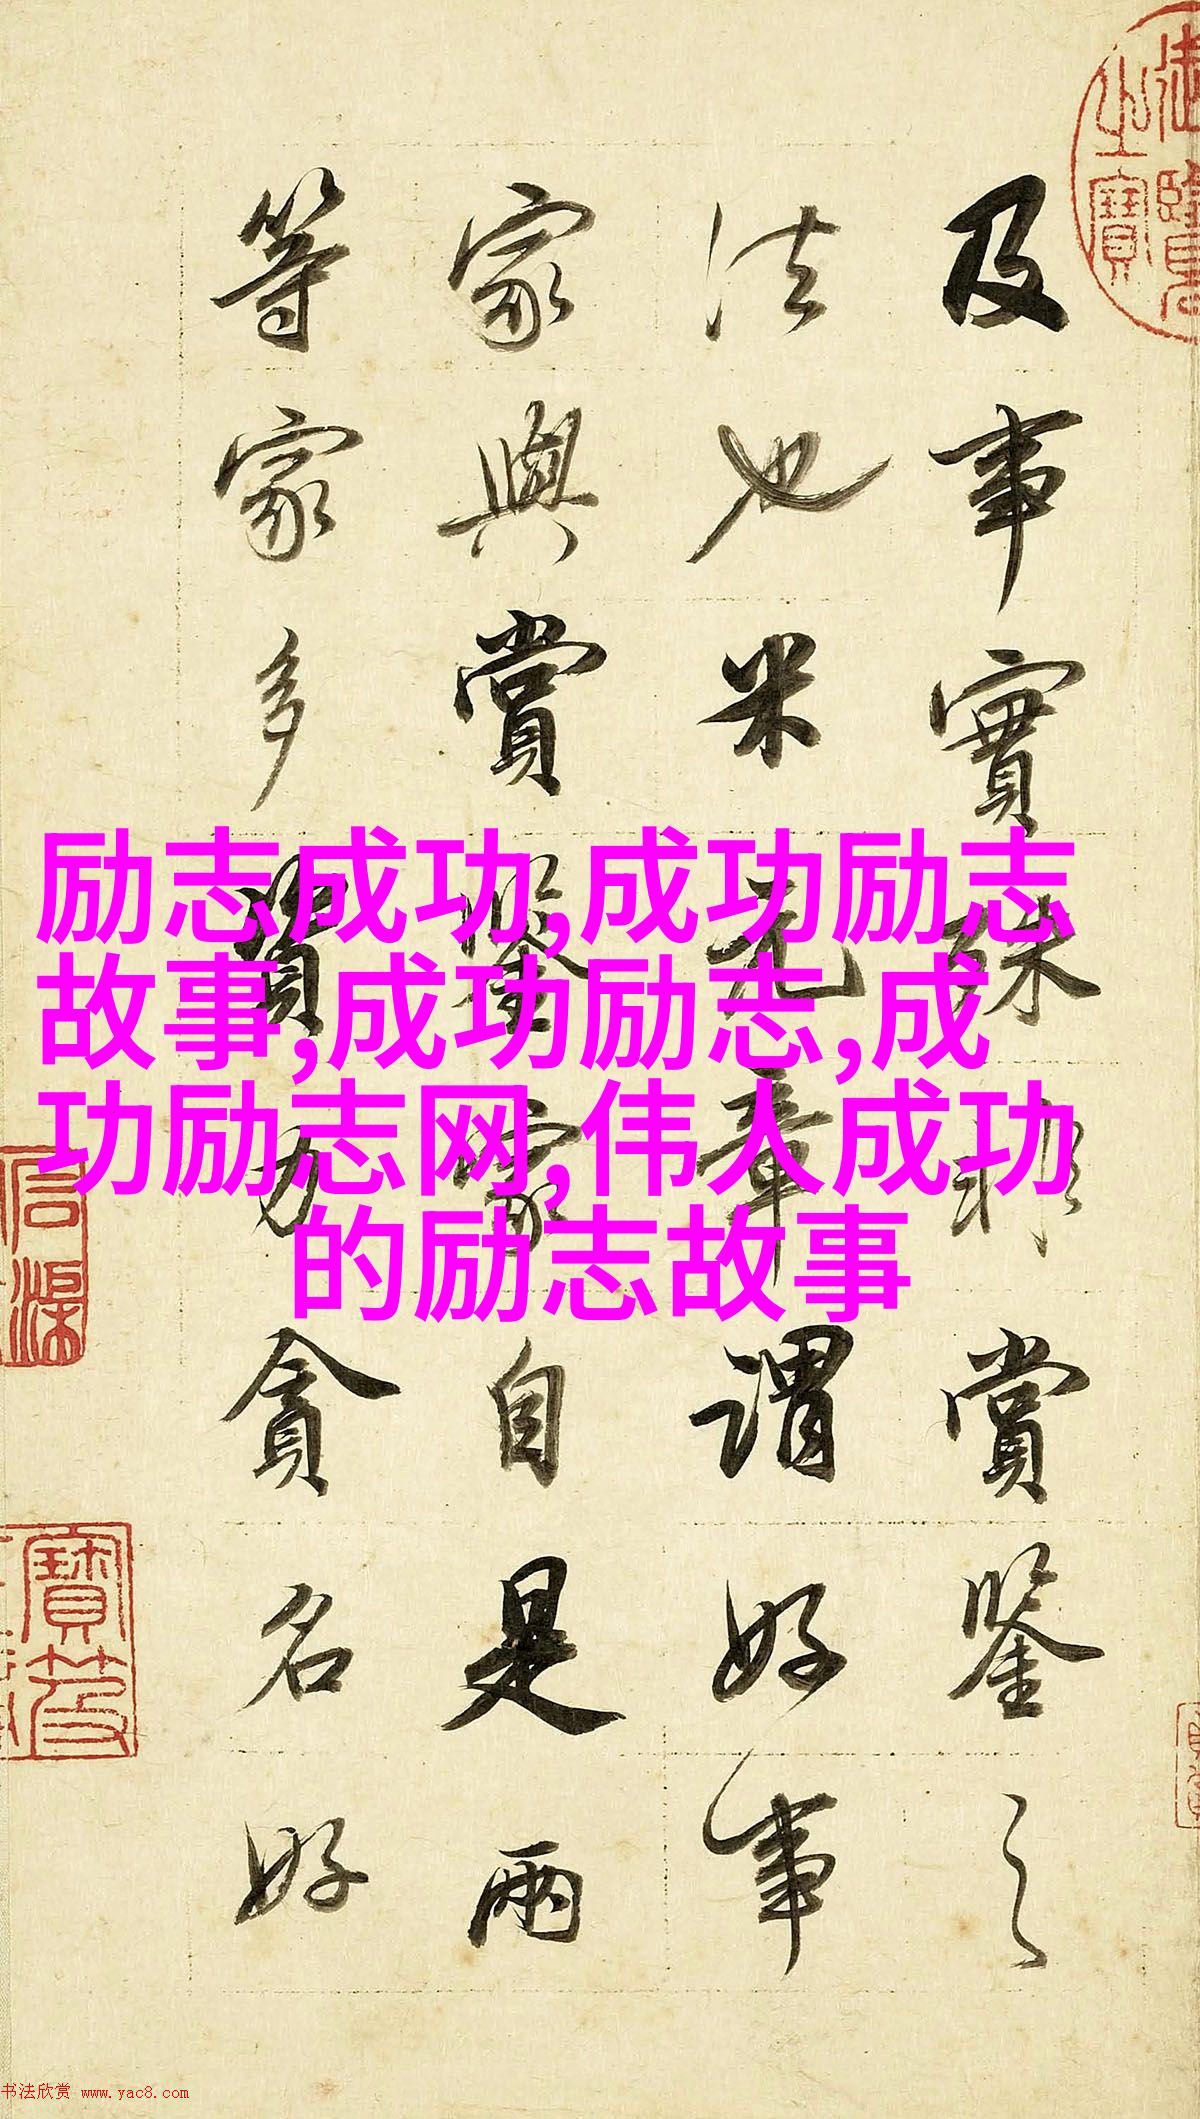 及事實殊非賞鑒之
法也米元章謂好事
家與賞鑒家自是兩
等家多資力貪名好
励志成功,成功励志
故事,成功励志,成
功励志网,伟人成功
的励志故事
御覽
之寶
石渠
寶笈
书法欣赏 www.yac8.com